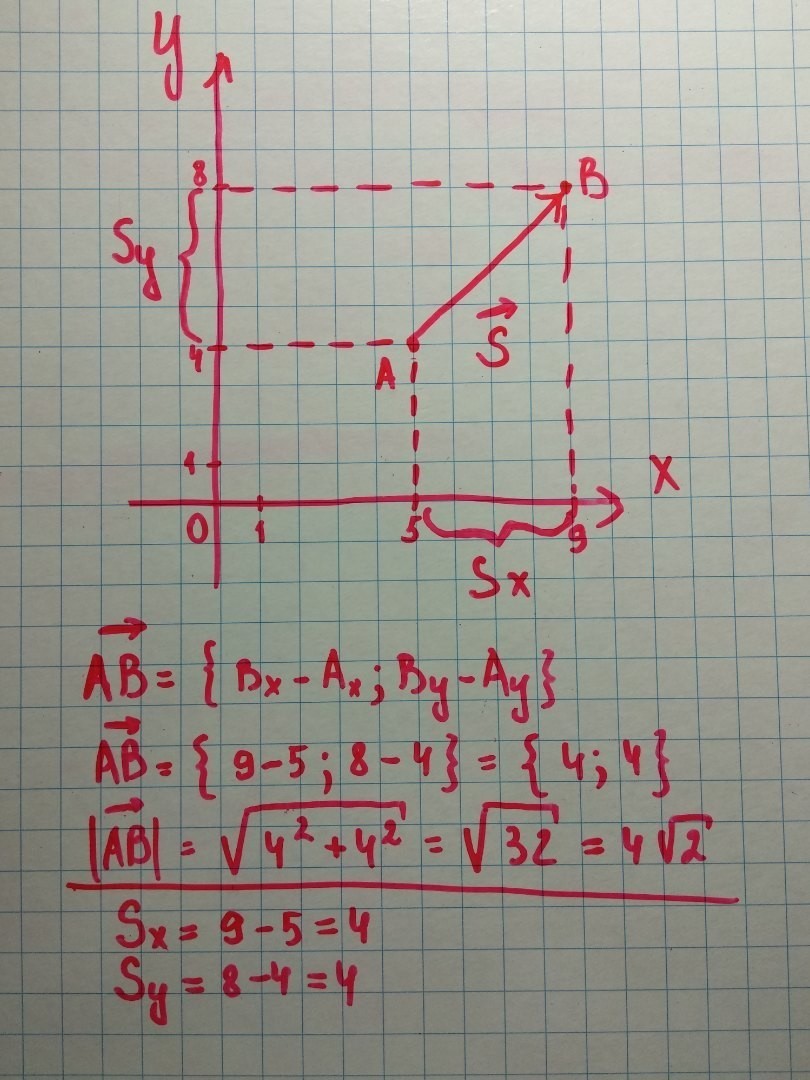 y
8
B
Sy
S⃗
4
A
1
x
0 1 5 9
Sx
A⃗B⃗ = { Bx - Ax ; By - Ay }
A⃗B⃗ = { 9 - 5 ; 8 - 4 } = { 4 ; 4 }
|A⃗B⃗| = √(4² + 4²) = √32 = 4√2
Sx = 9 - 5 = 4
Sy = 8 - 4 = 4